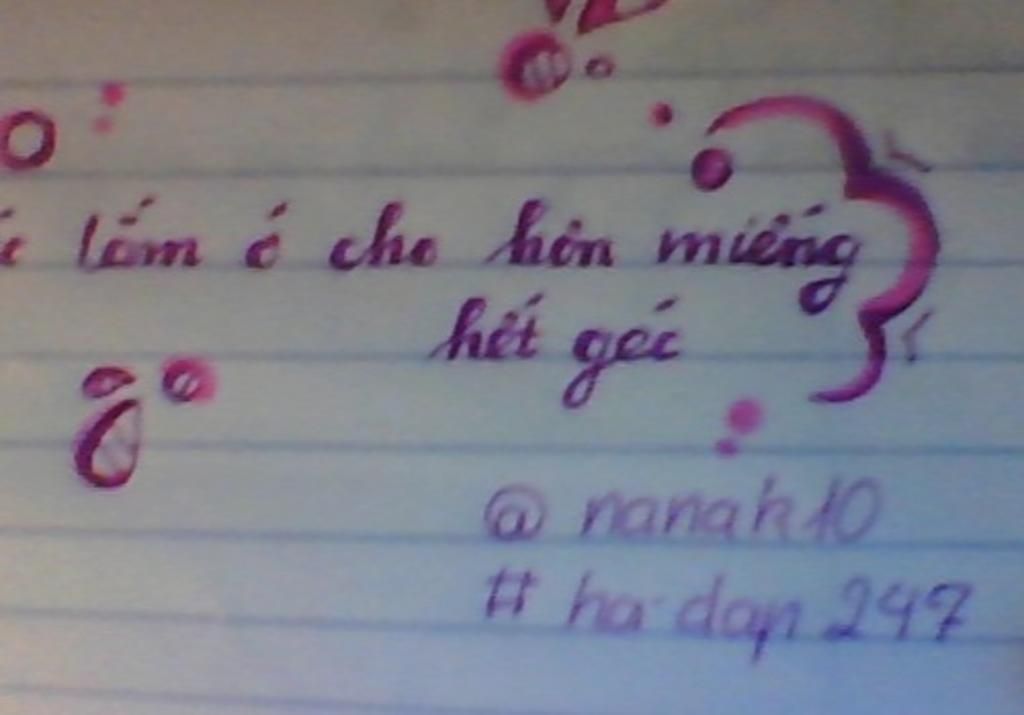 lắm ó cho hôn miếng
hết góc
@nanah10
# ha·dap 247